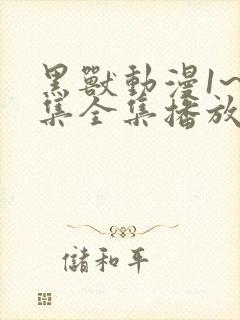 黑獸動漫1~
集全集播放
儲和平